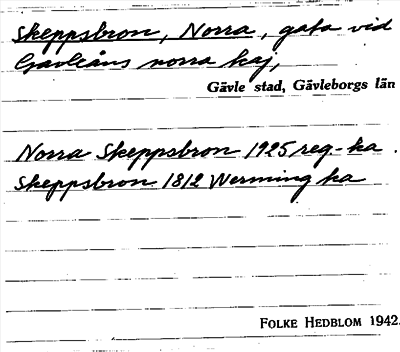 Skeppsbron, Norra, gata vid
Gavleåns norra kaj,
Gävle stad, Gävleborgs län
Norra Skeppsbron 1925 reg-ka.
Skeppsbron 1812 Werming ka
FOLKE HEDBLOM 1942.